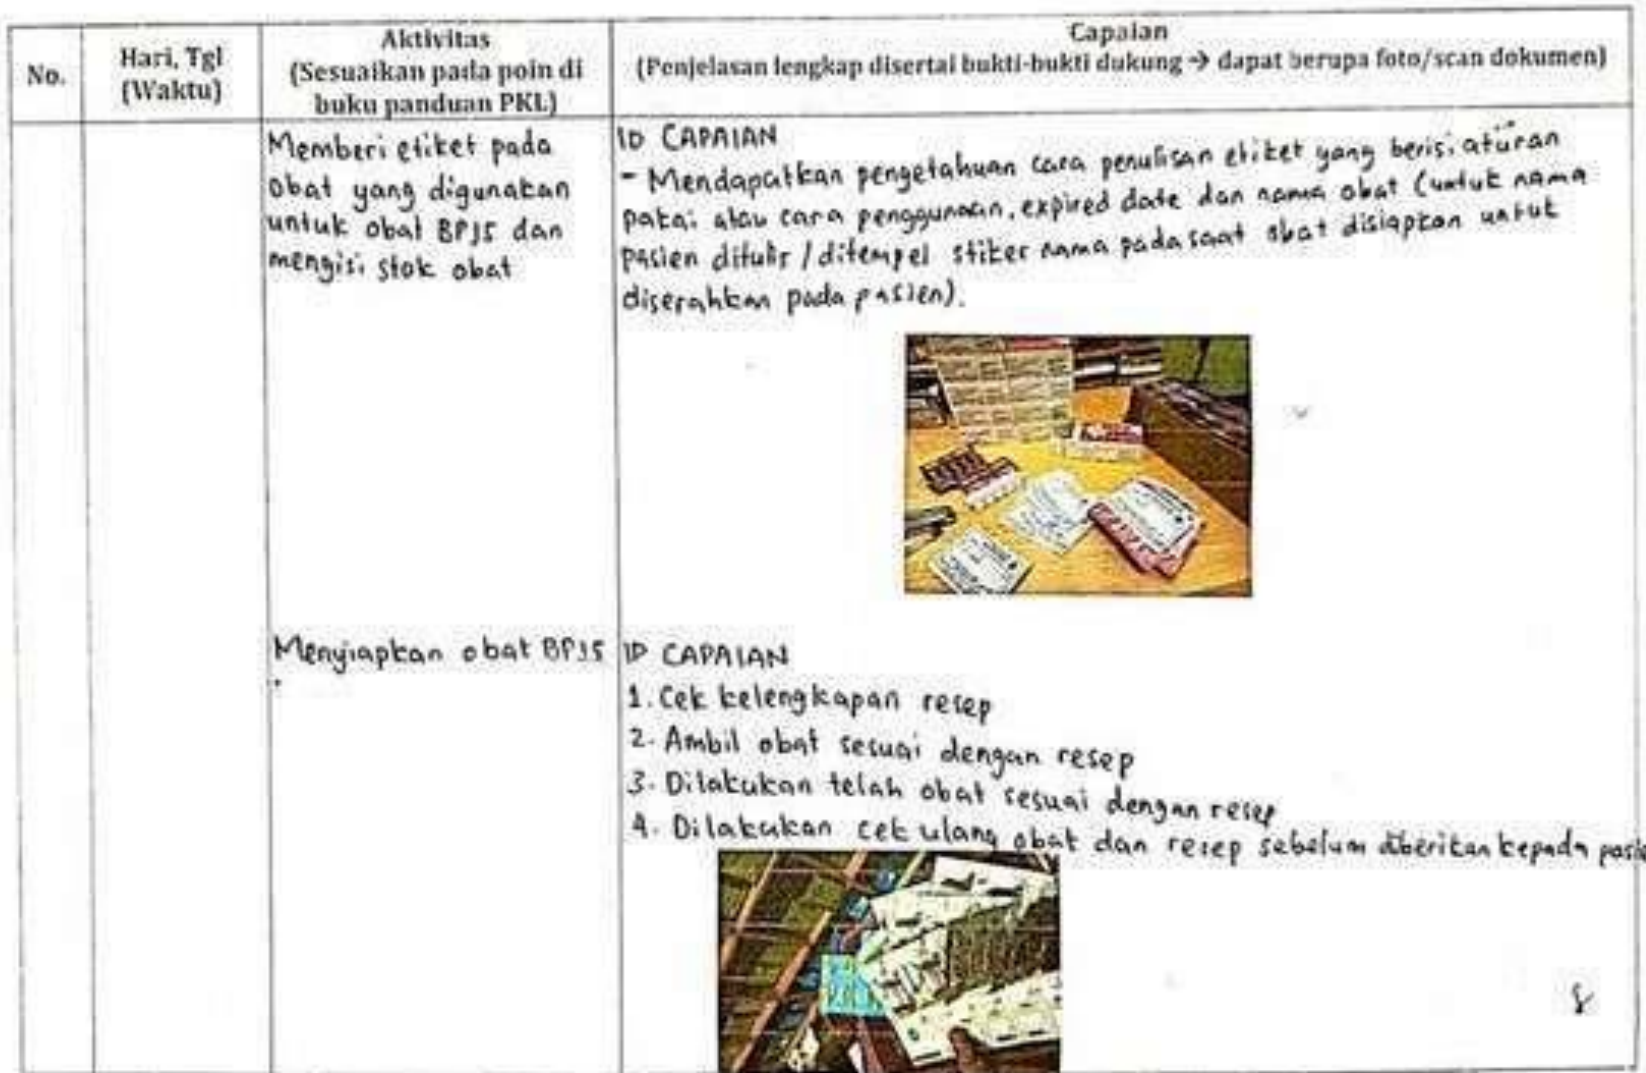 No.
Hari, Tgl
(Waktu)
Aktivitas
(Sesuaikan pada poin di
buku panduan PKL)
Capaian
(Penjelasan lengkap disertai bukti-bukti dukung → dapat berupa foto/scan dokumen)
Memberi etiket pada
obat yang digunakan
untuk obat BPJS dan
mengisi stok obat
ID CAPAIAN
- Mendapatkan pengetahuan cara penulisan etiket yang berisi aturan
pakai atau cara penggunaan, expired date dan nama obat (untuk nama
pasien ditulis / ditempel stiker nama pada saat obat disiapkan untuk
diserahkan pada pasien).
Menyiapkan obat BPJS
ID CAPAIAN
1. Cek kelengkapan resep
2. Ambil obat sesuai dengan resep
3. Dilakukan telah obat sesuai dengan resep
4. Dilakukan cek ulang obat dan resep sebelum diberikan kepada pasie